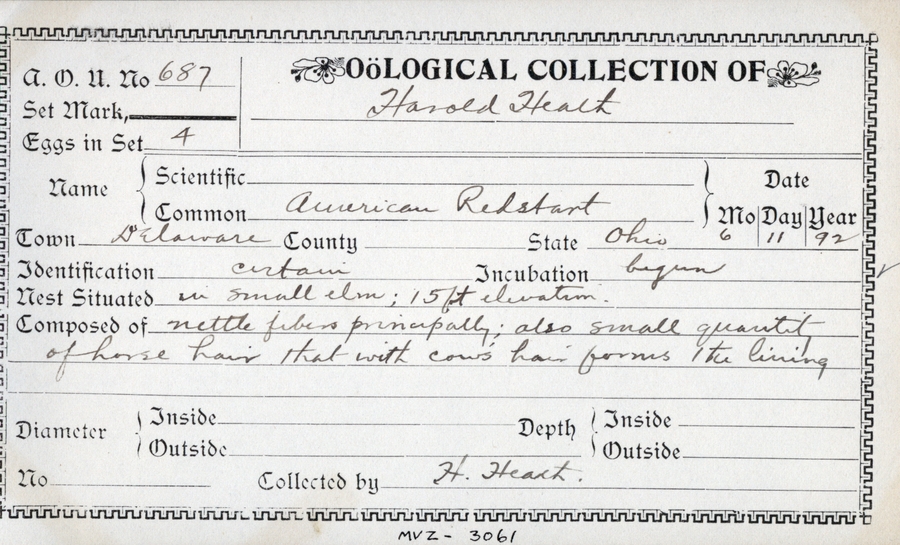 A. O. U. No 687
OöLOGICAL COLLECTION OF
Set Mark,
Harold Heath
Eggs in Set 4
Name
Scientific
Common American Redstart
Date
Mo Day Year
6 11 92
Town Delaware County State Ohio
Identification certain Incubation begun
Nest Situated in small elm; 15ft elevation.
Composed of nettle fibers principally; also small quantit
of horse hair that with cows hair forms the lining
Diameter
Inside
Outside
Depth
Inside
Outside
No Collected by H. Heath.
MVZ - 3061